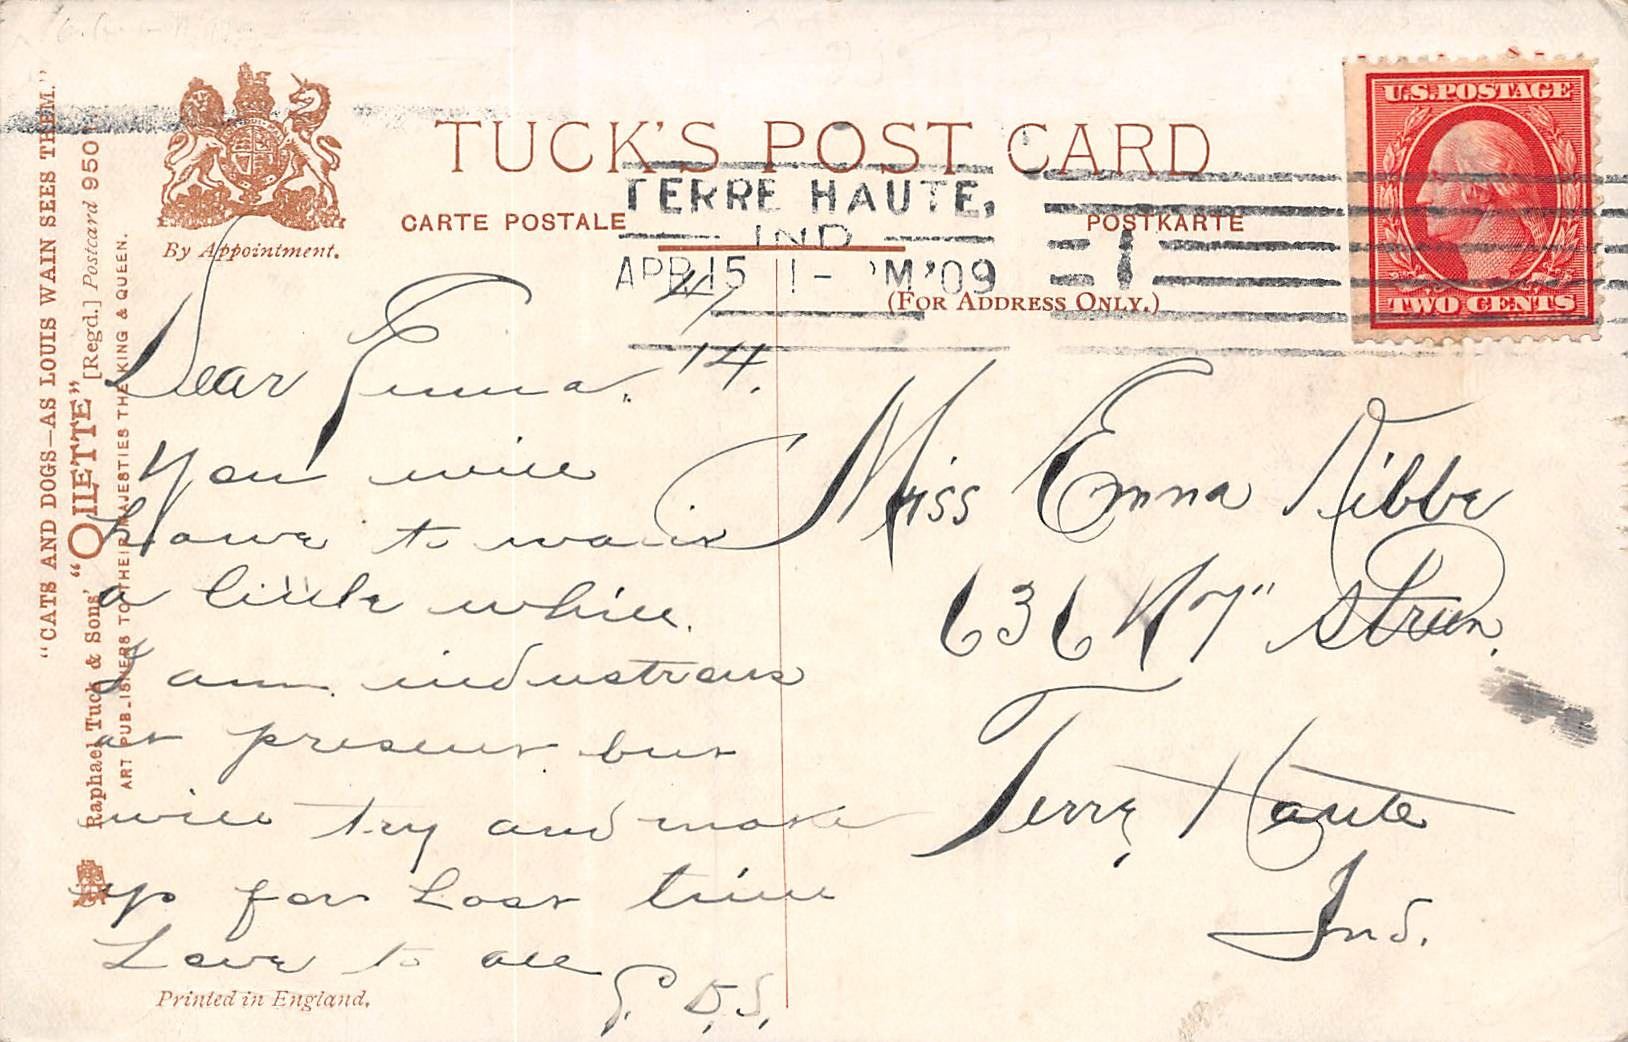 TUCK'S POST CARD
CARTE POSTALE
POSTKARTE
(FOR ADDRESS ONLY.)
By Appointment.
"CATS AND DOGS—AS LOUIS WAIN SEES THEM."
Raphael Tuck & Sons' "OILETTE" [Regd.] Postcard 950
ART PUBLISHERS TO THEIR MAJESTIES THE KING & QUEEN.
U.S. POSTAGE
TWO CENTS
TERRE HAUTE,
IND
APR 15 1- M '09
4/14.
Dear Emma,
You will
have to wait
a little while.
I am industrous
at present but
will try and make
up for lost time
Love to all
Printed in England.
Miss Emma Nibbe
636 N 7" Street,
Terre Haute
Ind.